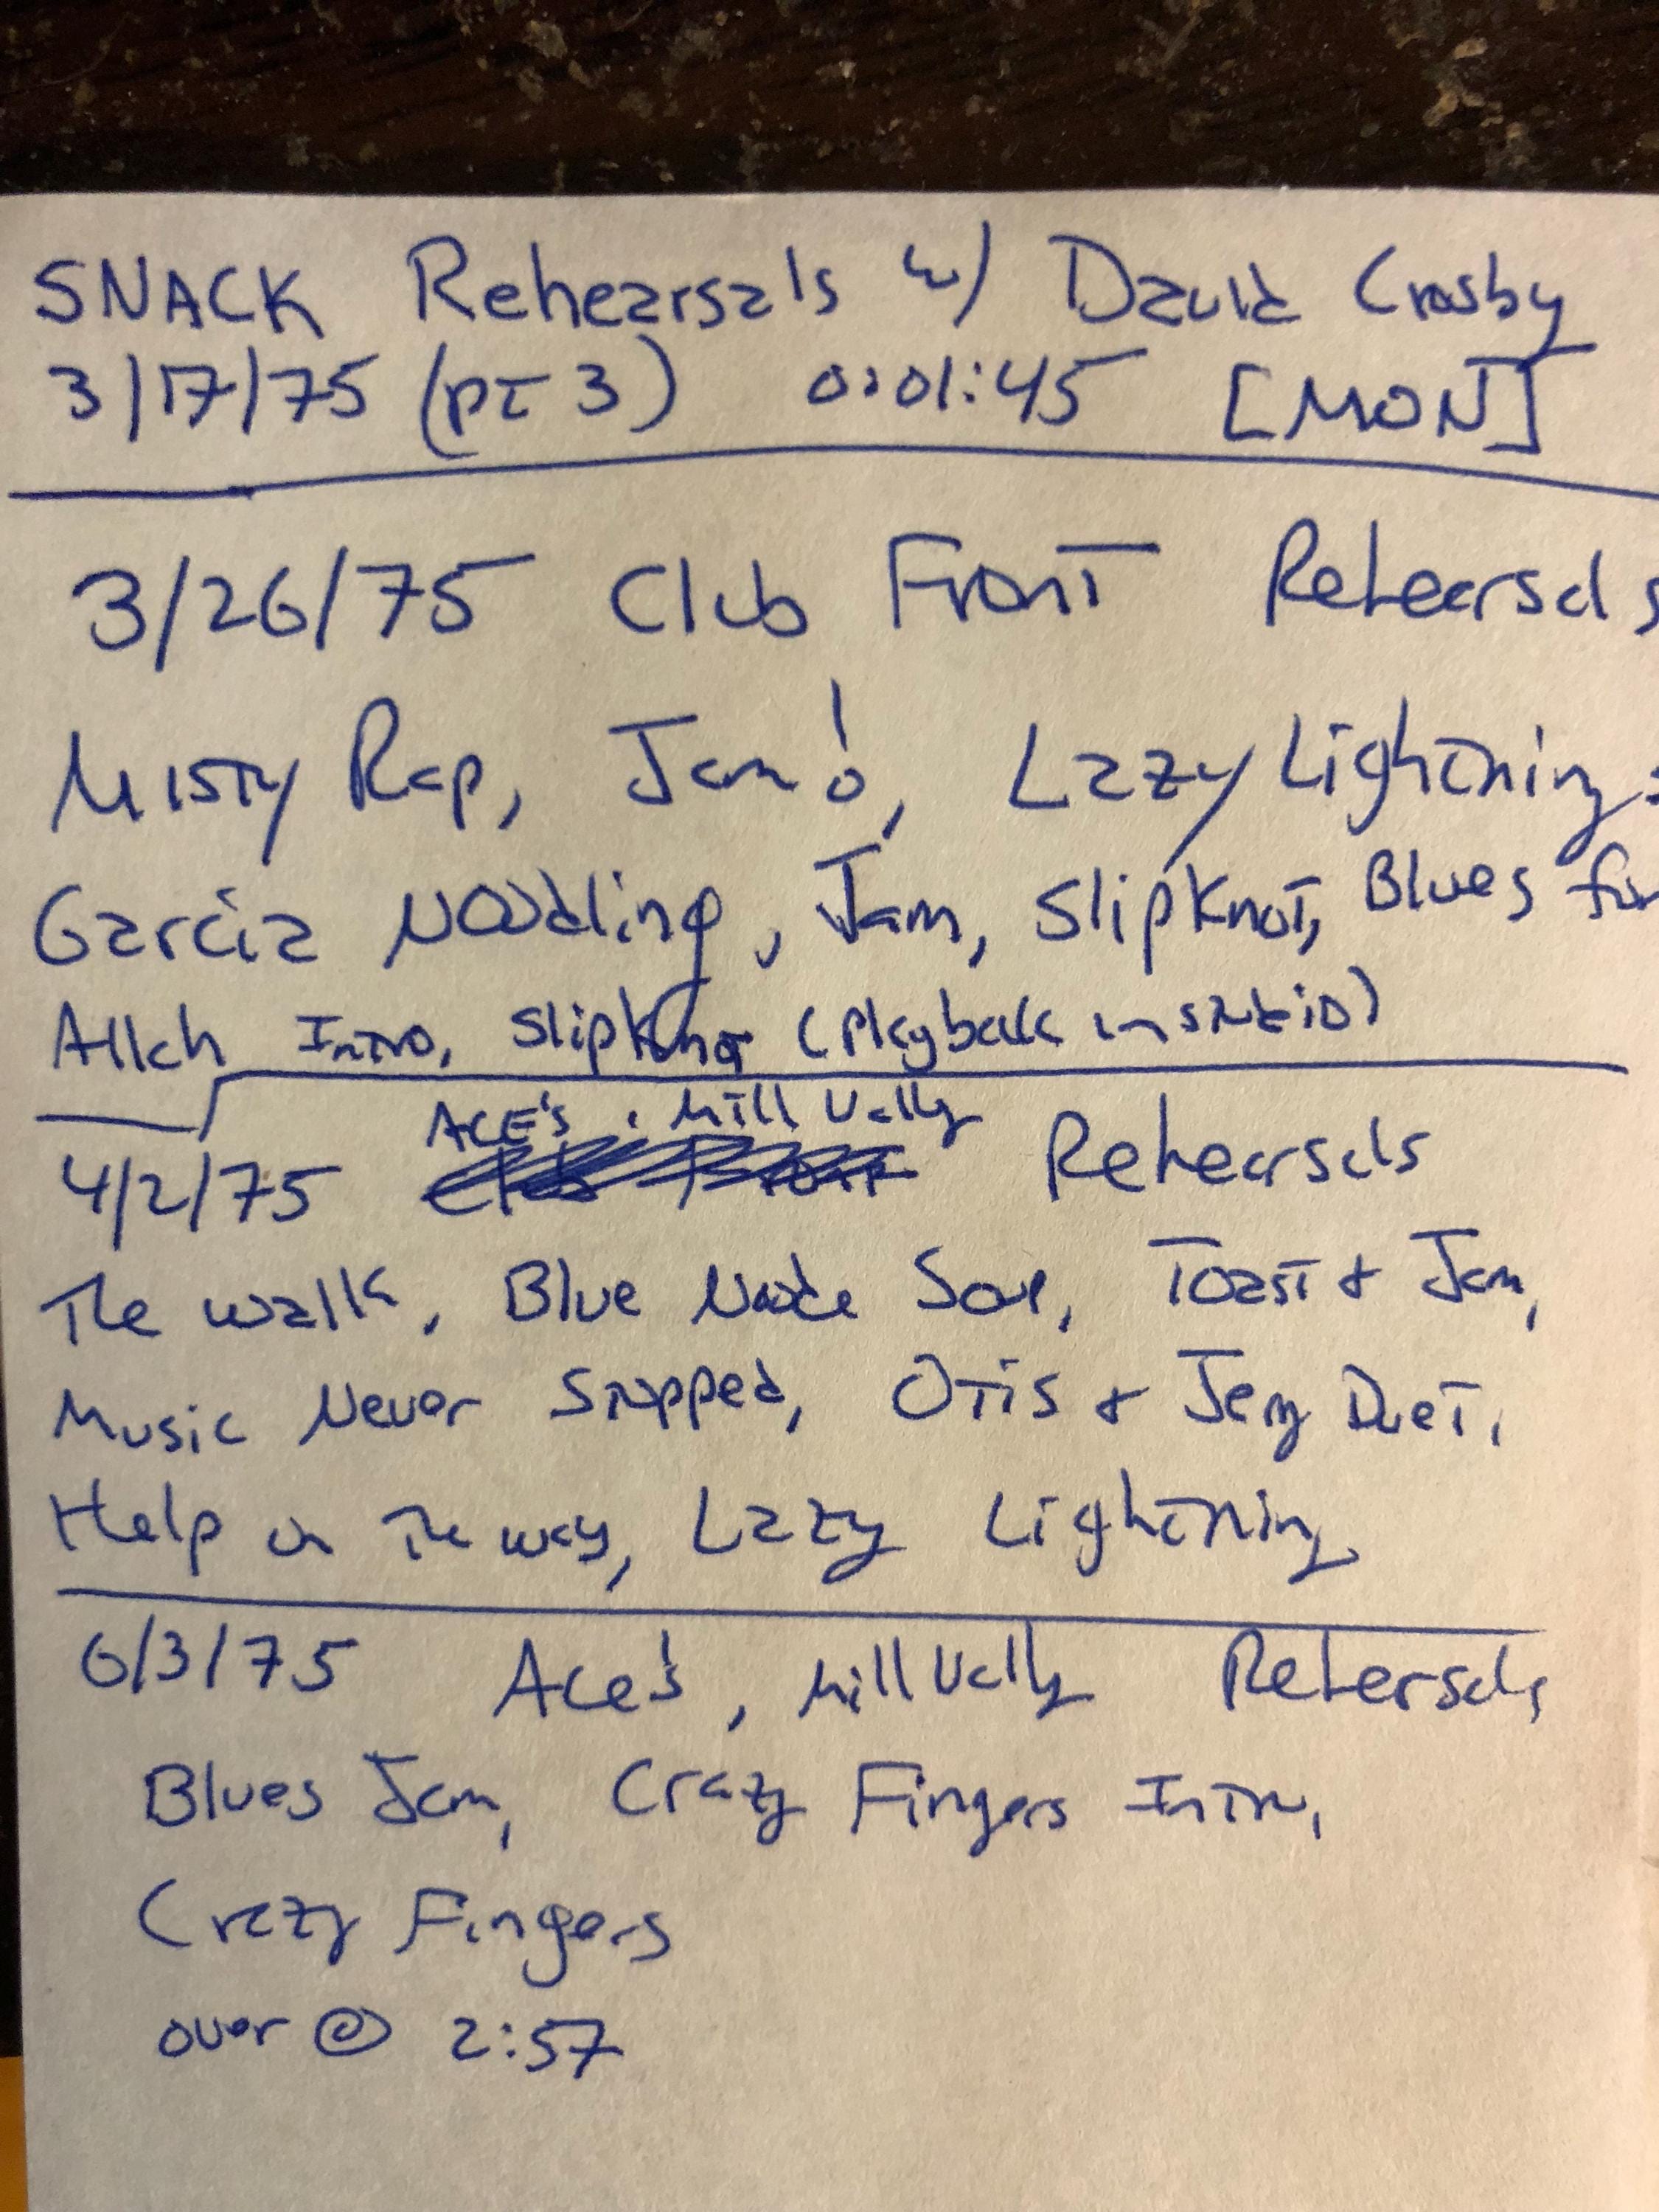 SNACK Rehearsals w/ David Crosby
3/17/75 (PT 3) 0:01:45 [MON]
3/26/75 Club Front Rehearsals
Misty Rap, Jam!, Lazy Lightning,
Garcia Noodling, Jam, Slipknot, Blues for
Allah Intro, Slipknot (Playback in studio)
ACE's, Mill Vally
4/2/75 Rehearsals
The Walk, Blue Note Soup, Toast & Jam,
Music Never Stopped, Otis & Jerry Duet,
Help on The Way, Lazy Lightning
6/3/75 Ace's, Mill Vally Rehersals
Blues Jam, Crazy Fingers Intro,
Crazy Fingers
over @ 2:57